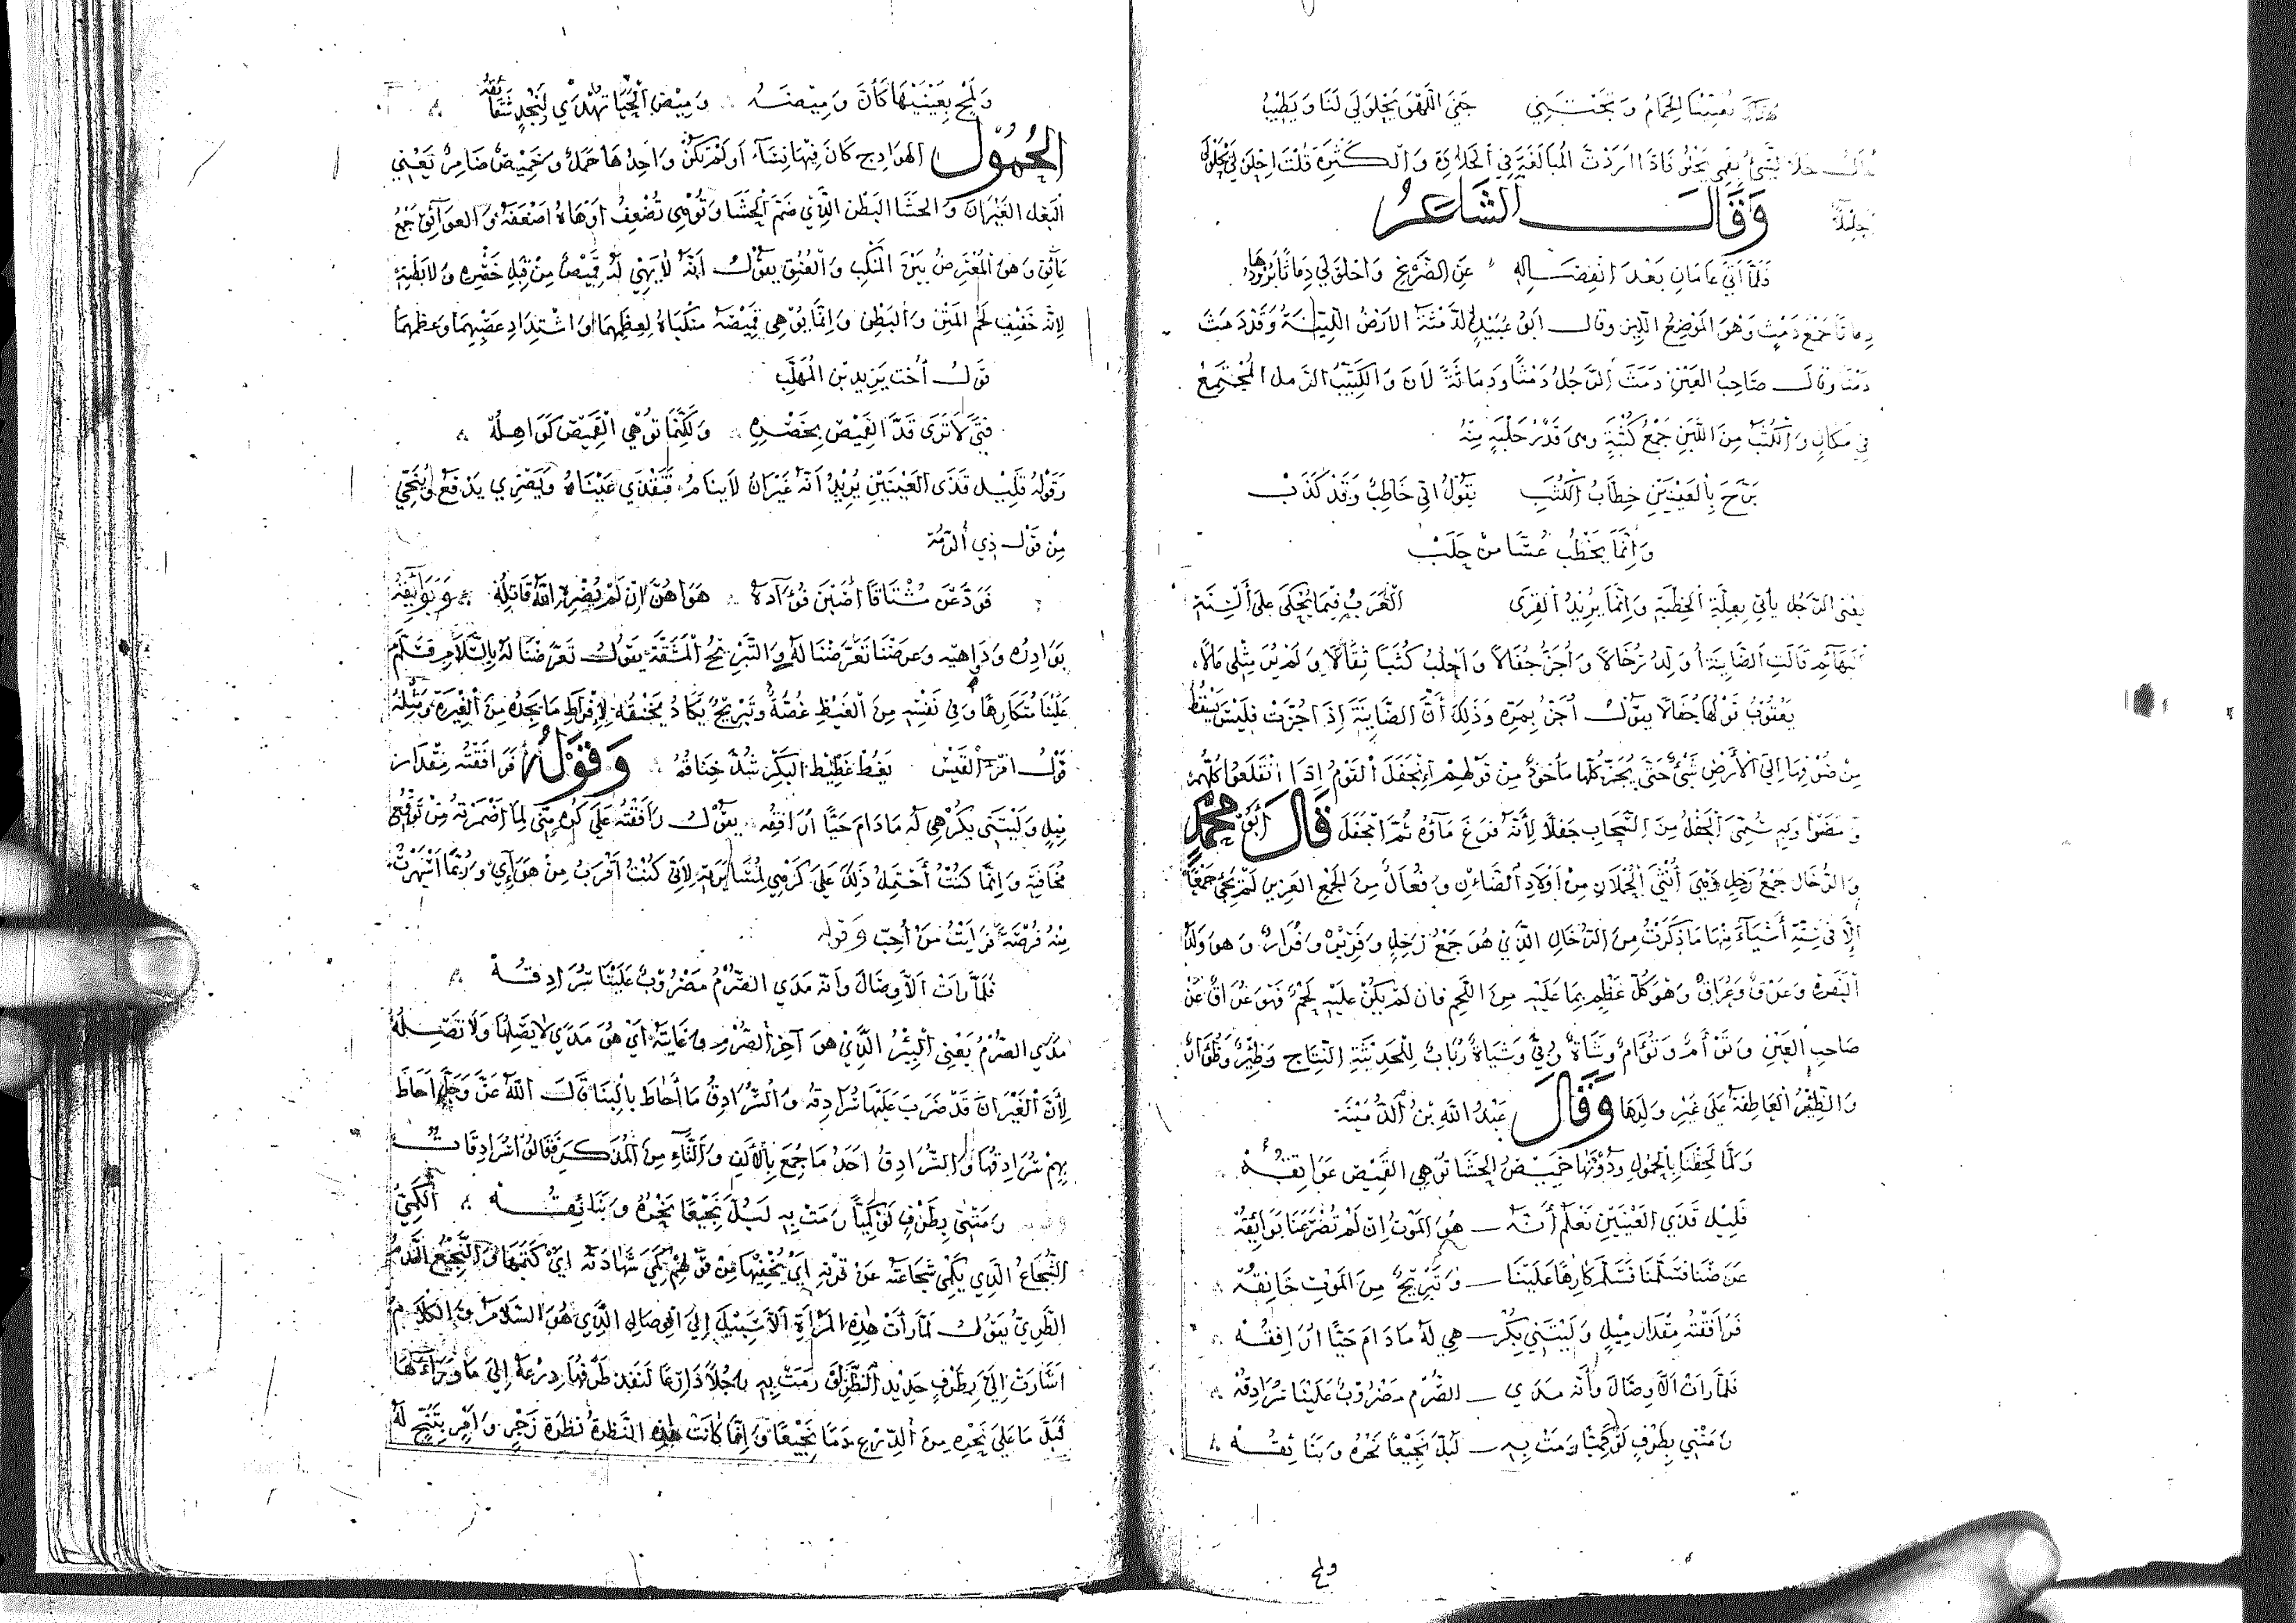 هناك يغنينا الحمام ونجتني جنى اللهو يحلولي لنا ويطيب
حلا الشيء بفمي يحلو فاذا اردت المبالغة في الحلاوة والكثرة قلت احلولى يحلولي
وَقَالَ الشَاعرُ
فلما اتى عامان بعد انفصاله عن الضرع واحلولى دماثا يرودها
دماثا جمع دمث وهو الموضع اللين وقال ابو عبيد الدمثة الارض اللينة وقد دمث
دمثا وقال صاحب العين دمث الرجل دمثا ودماثة لان والكثيب الرمل المجتمع
في مكان والكثب من اللبن جمع كثبة وهي قدر حلبة منه
برح بالعينين خطاب الكثب يقول اني خاطب وقد كذب
وانما يخطب عسا من حلب
يعني الرجل يأتي بعلة الخطبة وانما يريد القرى العرب فيما يحكى على ألسنة
البهائم قالت الضاينة أولد رخالا وأجز جفالا وأحلب كثبا ثقالا ولم تر مثلي مالا
يعقوب قولها جفالا يقول أجز بمرة وذلك أن الضاينة إذا جزت فليس يسقط
من صوفها إلى الأرض شيء حتى يجز كلها مأخوذ من قولهم انجفل القوم إذا انقلعوا كلهم
ومضوا وبه سمي الجفل من السحاب جفلا لأنه فرغ ماؤه ثم انجفل قَالَ أبو محمد
والرخال جمع رخل وهي أنثى الحملان من أولاد الضائن وفعال من الجمع العزيز لم يجئ جمعا
إلا في ستة أشياء منها ما ذكرت من الرخال الذي هو جمع رخل وفرير وفرار وهو ولد
البقرة وعرق وعراق وهو كل عظم بما عليه من اللحم فان لم يكن عليه لحم فهو عراق عن
صاحب العين وتوأم وتؤام وشاة ربى وشياة رباب للحديثة النتاج وظئر وظؤار
والظئر العاطفة على غير ولدها وَقَالَ عبد الله بن الدمينة
ولما لحقنا بالحمول ودونها خميص الحشا توهي القميص عواتقه
قليل قذى العينين نعلم أنه هو الموت ان لم تضر عنا بوائقه
عرضنا فسلمنا فسلم كارها علينا وتبريح من الموت خانقه
فرافقته مقدار ميل وليتني بكرهي له ما دام حيا ارافقه
فلما رات الا وصال وأنه مدى الصرم مضروب علينا سرادقه
رمتني بطرف لو كميا رمت به لبل نجيعا نحره وبنائقه
ولمح
ولمح بعينيها كأن وميضه وميض الحيا تهدي لنجد شقائقه
الحُمُول الهوادج كان فيها نساء او لم يكن واحدها حمل وخميص ضامر يعني
البعل الغيران والحشا البطن الذي ضم الحشا وتوهي تضعف اوهاه اضعفه والعواتق جمع
عاتق وهو المعترض بين المنكب والعنق يقول انه لا يهي له قميص من قبل خصره ولا بطنه
لانه خفيف لحم المتن والبطن وانما يوهي قميصه منكباه لعظمهما واشتداد عصبهما وعظمهما
قول أخت يزيد بن المهلب
فتى لا ترى قد القميص بخصره ولكنما توهي القميص كواهله
وقوله قليل قذى العينين يريد أنه غيران لا ينام فتقذى عيناه ويضري يدفع وينحي
من قول ذي الرمة
فودعن مشتاقا أصبن فؤاده هواهن ان لم يضره الله قاتله وبوائقه
بوادره ودواهيه وعرضنا تعرضنا له والتبريح المشقة يقول تعرضنا له بالسلام فسلم
علينا متكارها وفي نفسه من الغيظ غصة وتبريح يكاد يخنقه لإفراط ما يجده من الغيرة ومثله
قول امرئ القيس يغط غطيط البكر شد خناقه وَقَوْلُه فرافقته مقدار
ميل وليتني بكرهي له ما دام حيا ارافقه يقول رافقته على كره مني لما أضمرته من توقع
مخافته وانما كنت أحتمل ذلك على كرهي لمسايرته لأني كنت أقرب من هواي وربما انتهزت
منه فرصة فرايت من أحب وقوله
فلما رات الا وصال وانه مدى الصرم مضروب علينا سرادقه
مدى الصرم يعني الذي هو آخر الصرم وغايته اي هو مدى لا يصلها ولا تصله
لأن الغيران قد ضرب عليها سرادقه والسرادق ما أحاط بالبنا قال الله عز وجل احاط
بهم سرادقها والسرادق احد ما جمع بالألف والتاء من المذكر فقالوا سرادقات
رمتني بطرف لو كميا رمت به لبل نجيعا نحره وبنائقه الكمي
الشجاع الذي يكمي شجاعته عن قرنه اي يخفيها من قولهم كمى شهادته اي كتمها والنجيع الدم
الطري يقول لما رأت هذه المرأة الا سبيل إلى الوصال الذي هو السلام والكلام
اشارت الي بطرف حديد النظر لو رمت به رجلا دارعا لنفذ طرفها درعه إلى ما وراءها
فبل ما على نحره من الدرع دما نجيعا وانما كانت هذه النظرة نظرة زجر وامر بتنح له